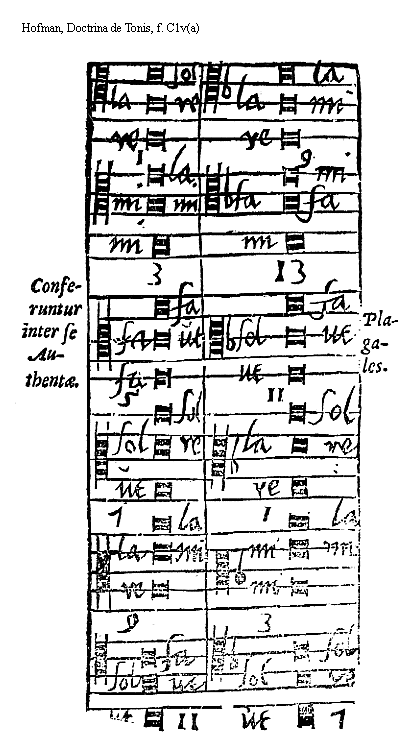 Hofman, Doctrina de Tonis, f. C1v(a)
sol la
la re la mi
re re
1 9
la mi
mi mi fa fa
mi mi
3 13
Confe-
runtur
inter se
Au-
thentæ.
fa fa
fa ut sol ut
fa ut
5 11
Pla-
ga-
les.
sol sol
sol re la re
ut re
7 1
la la
la mi mi mi
re mi
9 3
fa sol
sol ut sol re
ut 11 ut 7